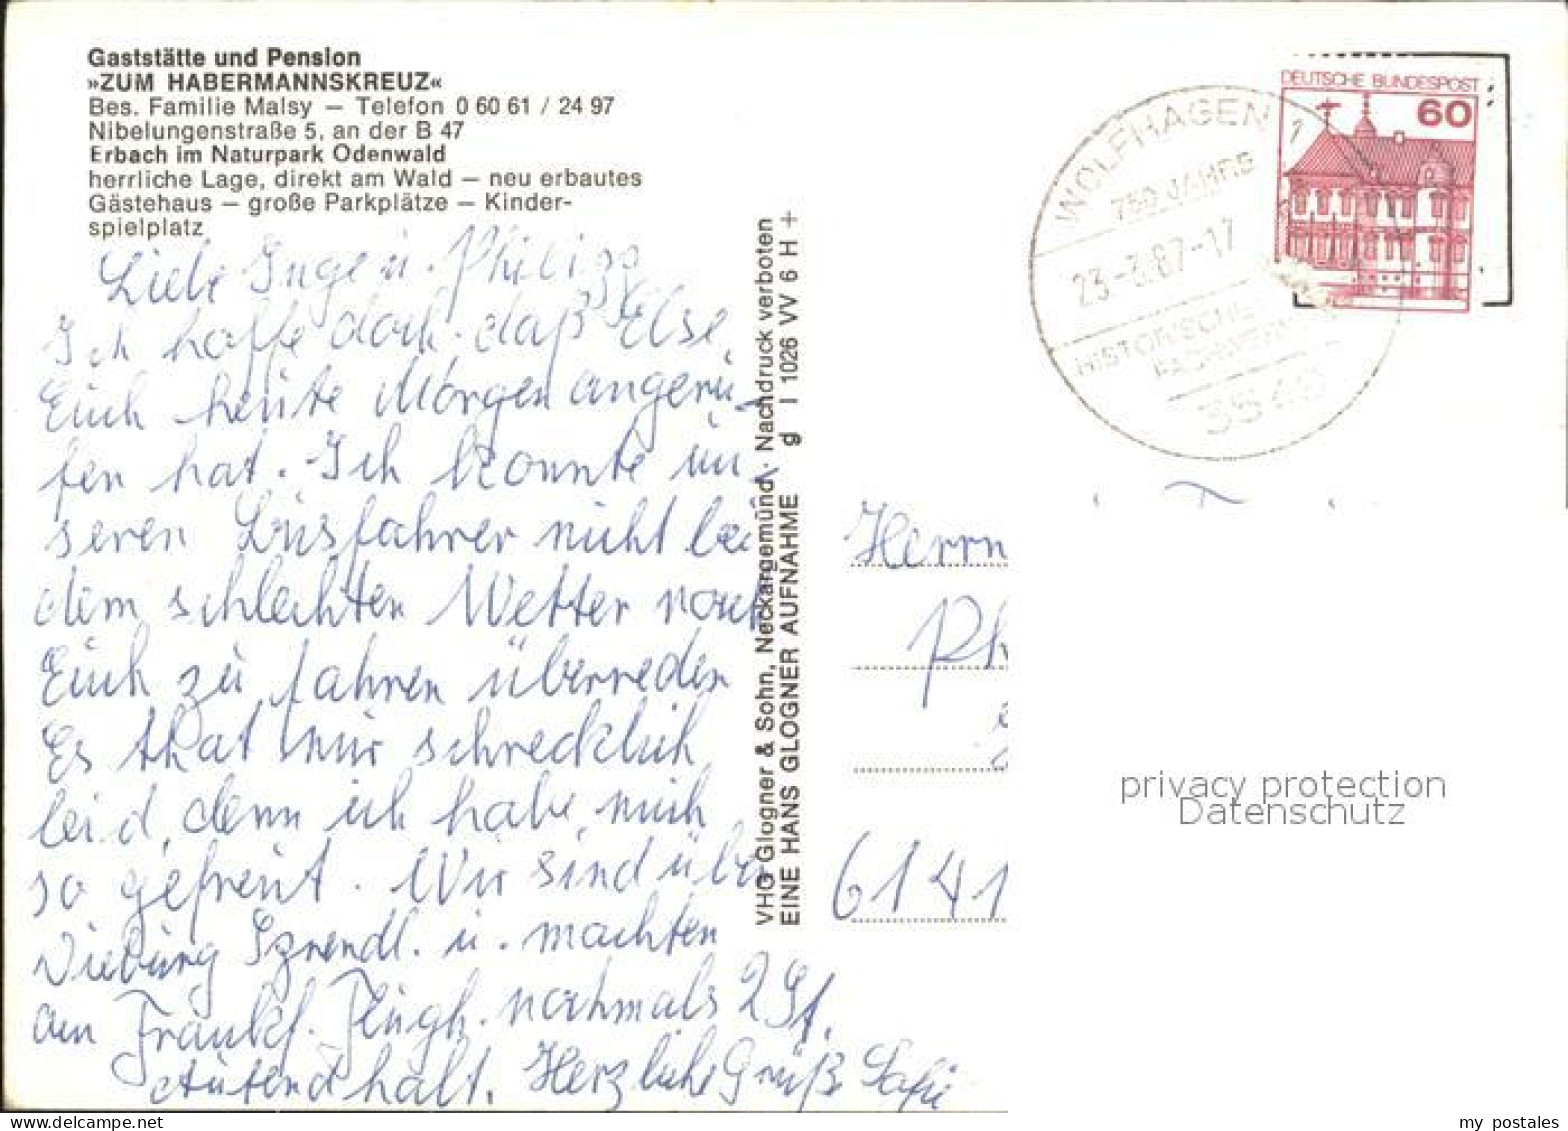 Gaststätte und Pension
»ZUM HABERMANNSKREUZ«
Bes. Familie Malsy — Telefon 0 60 61 / 24 97
Nibelungenstraße 5, an der B 47
Erbach im Naturpark Odenwald
herrliche Lage, direkt am Wald — neu erbautes
Gästehaus — große Parkplätze — Kinder-
spielplatz
Liebe Inge u. Philipp
Ich hoffe doch, daß Else
Euch heute Morgen angeru-
fen hat. Ich konnte un-
seren Busfahrer nicht bei
dem schlechten Wetter nach
Euch zu fahren überreden
Es that mir schrecklich
leid, denn ich habe mich
so gefreut. Wir sind über
Dieburg u. machten
am Frankf. Flugh. nochmals 2 St.
Aufenthalt. Herzliche Grüße
VHG Glogner & Sohn, Neckargemünd · Nachdruck verboten
EINE HANS GLOGNER AUFNAHME g I 1026 VV 6 H +
DEUTSCHE BUNDESPOST
60
WOLFHAGEN 1
750 JAHRE
23.-3.87-17
HISTORISCHE
3549
Herrn
Ph
6141
privacy protection
Datenschutz
www.delcampe.net
my_postales